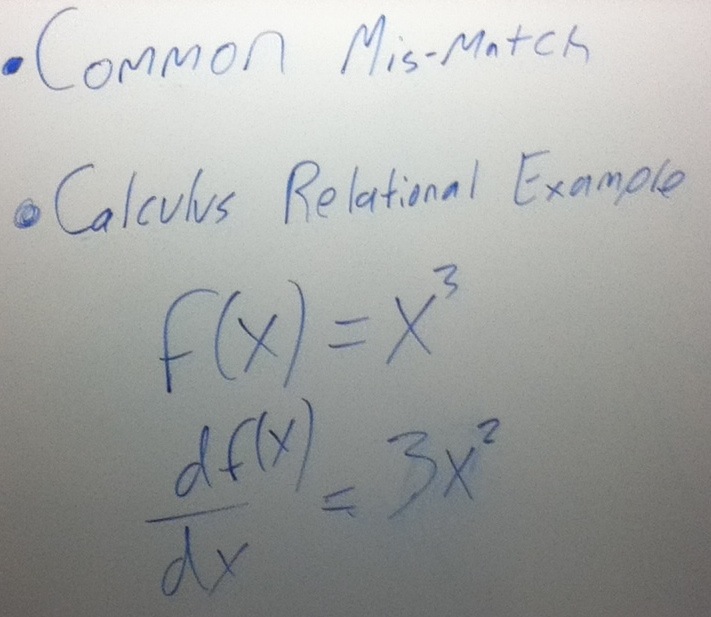 • Common Mis-Match
• Calculus Relational Example
f(x) = x³
df(x)/dx = 3x²